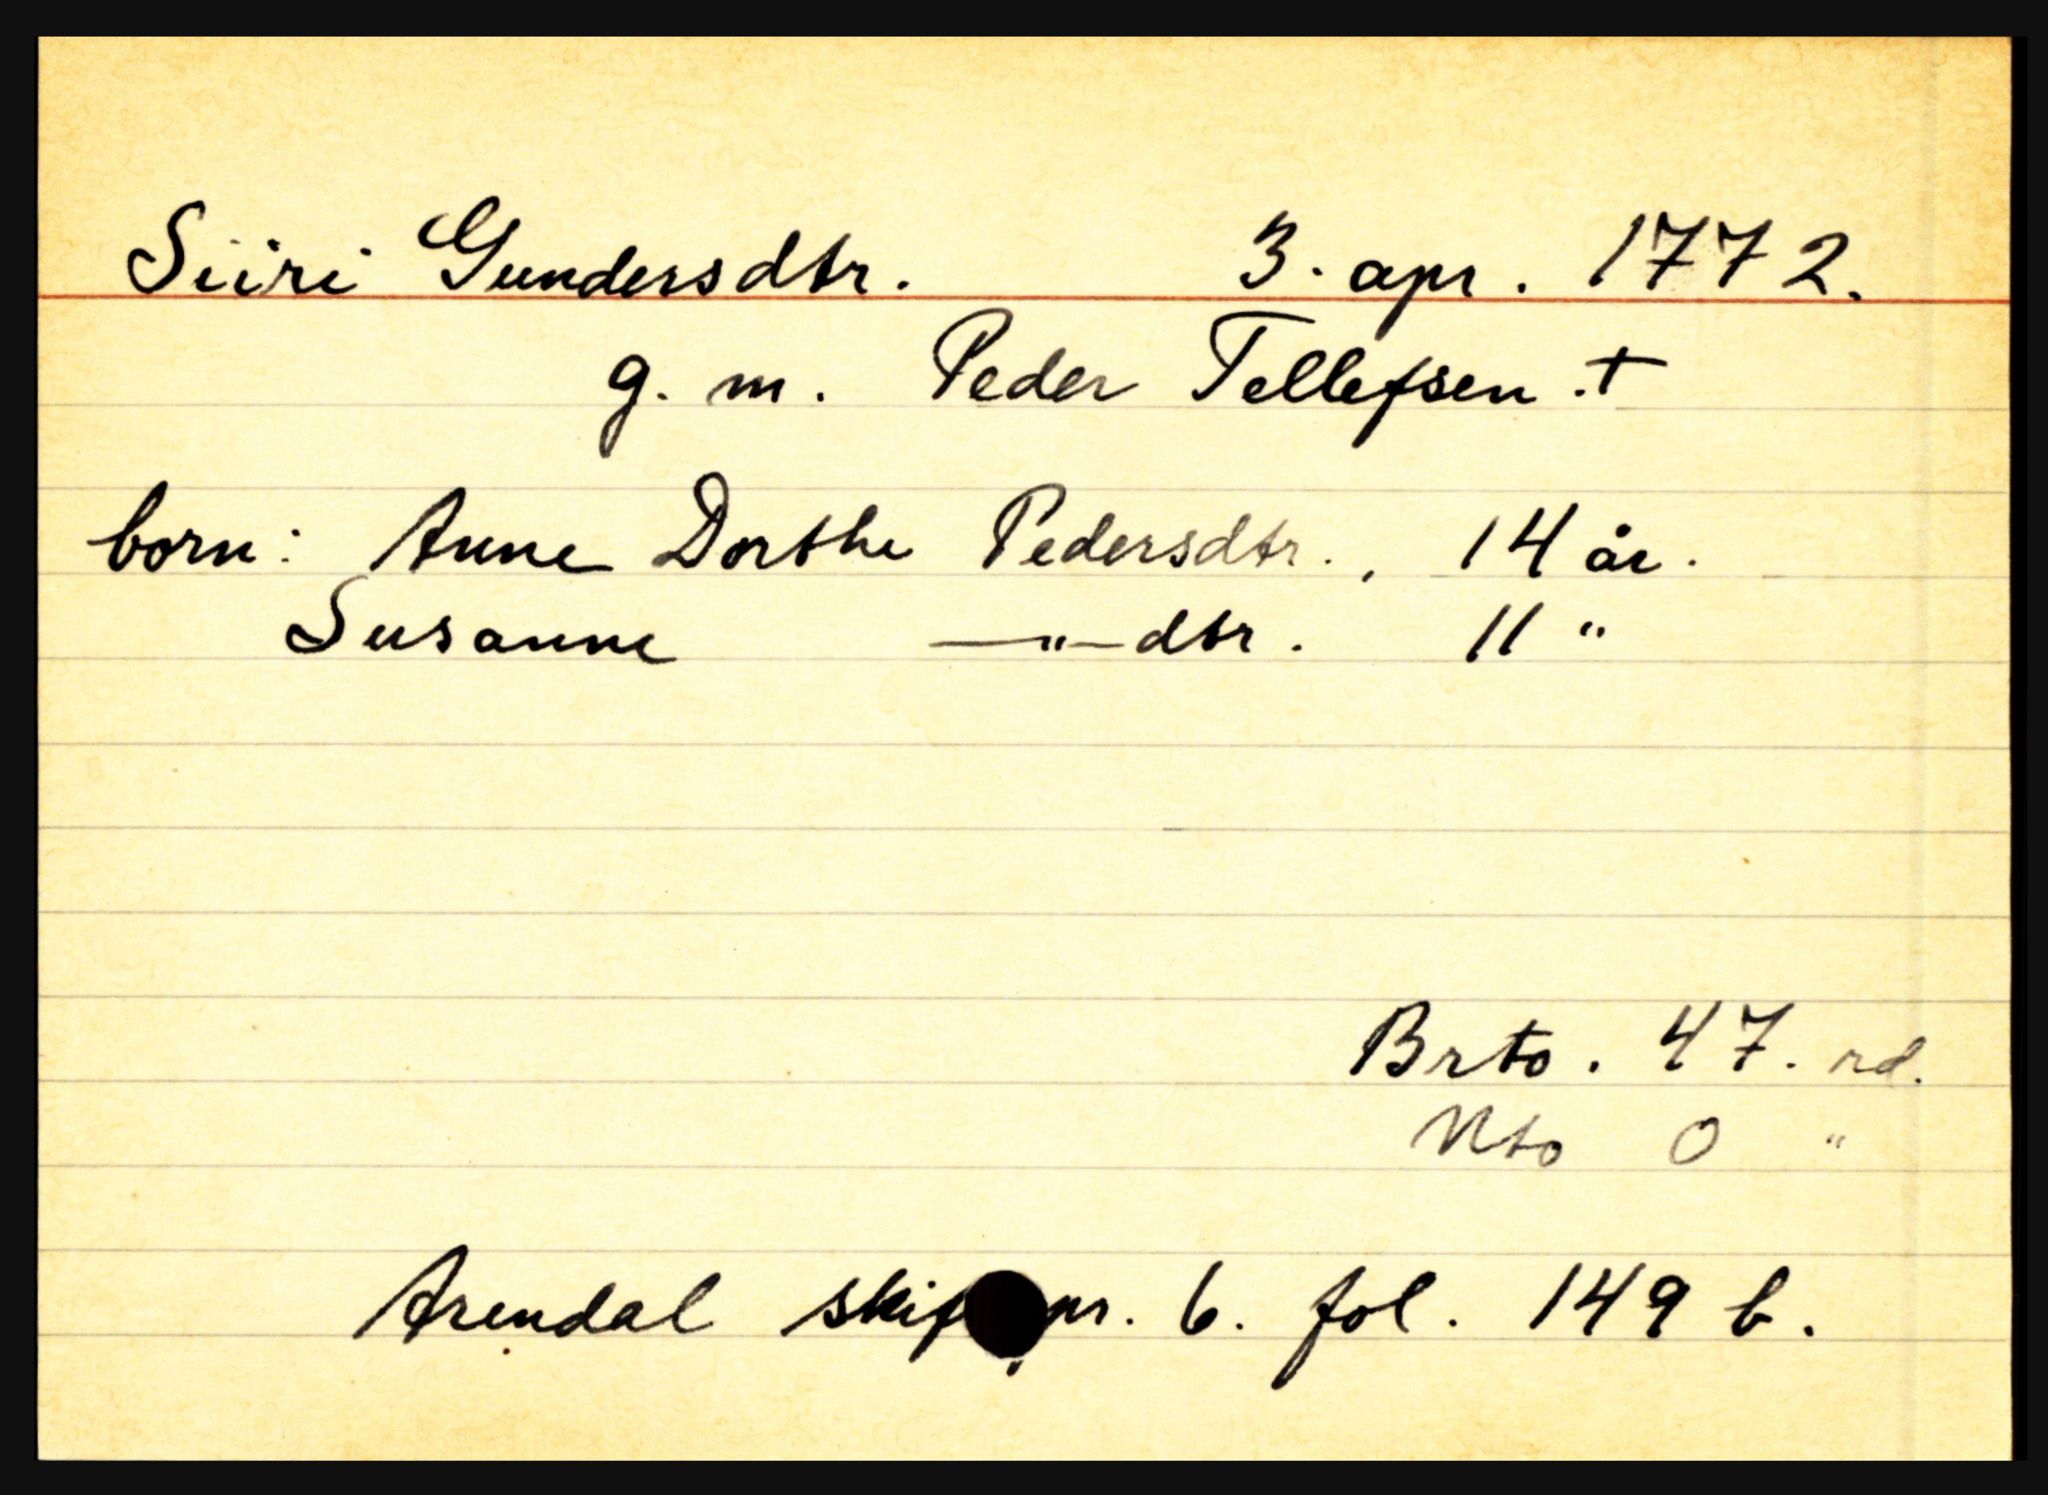 Siiri Gundersdtr. 3. apr. 1772.
g. m. Peder Tellefsen . +
born: Anne Dorthe Pedersdtr., 14 år.
Susanne —"— dtr. 11 "
Brto. 47. rd.
Nto 0 "
Arendal nr. 6. fol. 149 b.